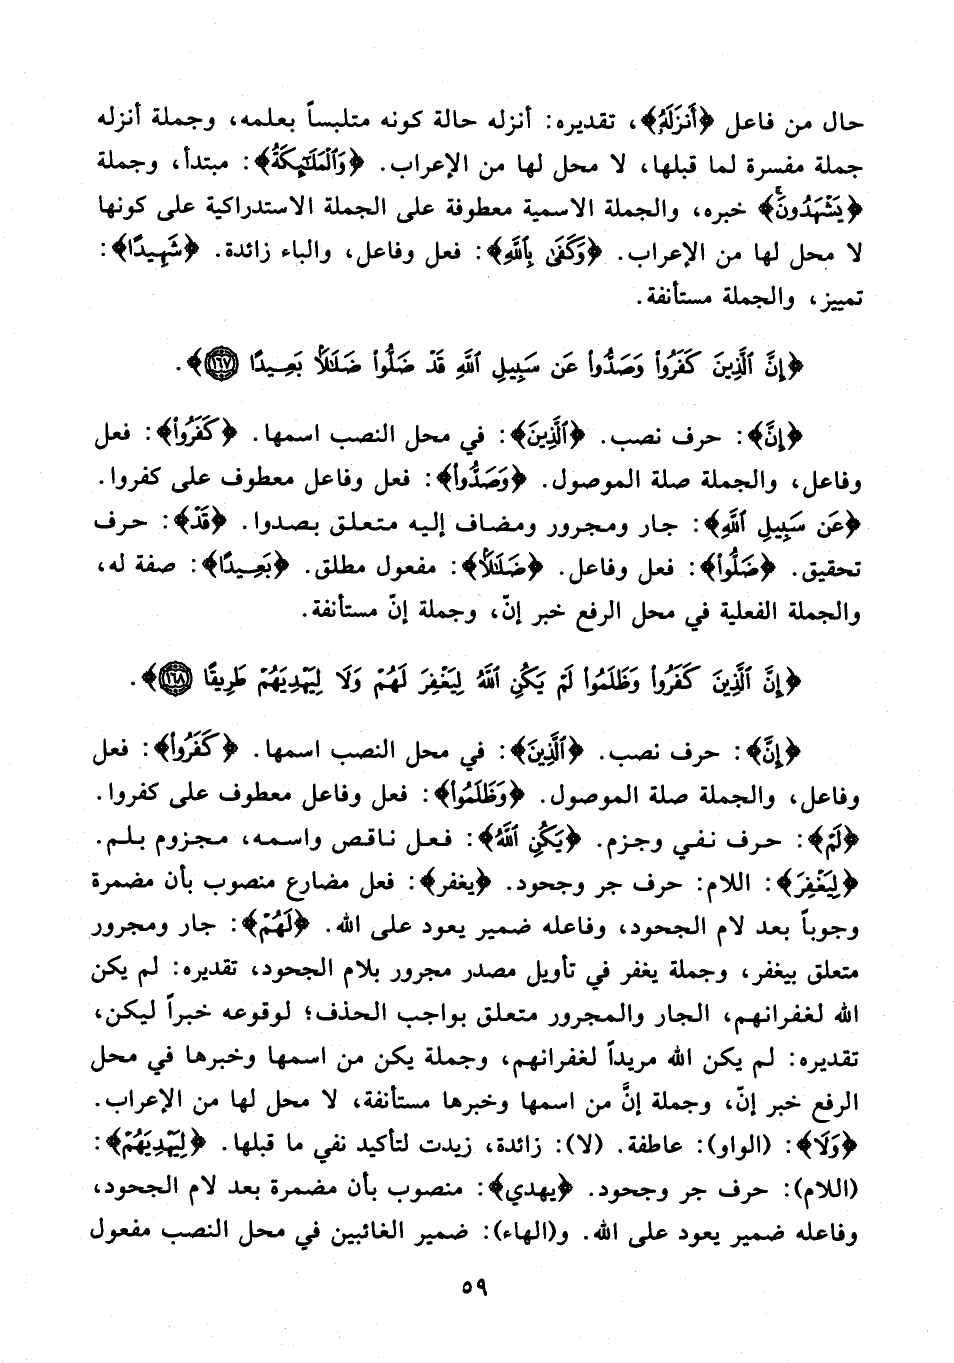 حال من فاعل ﴿أَنزَلَهُ﴾، تقديره: أنزله حالة كونه متلبساً بعلمه، وجملة أنزله
جملة مفسرة لما قبلها، لا محل لها من الإعراب. ﴿وَٱلْمَلَـٰٓئِكَةُ﴾: مبتدأ، وجملة
﴿يَشْهَدُونَ﴾ خبره، والجملة الاسمية معطوفة على الجملة الاستدراكية على كونها
لا محل لها من الإعراب. ﴿وَكَفَىٰ بِٱللَّهِ﴾: فعل وفاعل، والباء زائدة. ﴿شَهِيدًا﴾:
تمييز، والجملة مستأنفة.
﴿إِنَّ ٱلَّذِينَ كَفَرُوا۟ وَصَدُّوا۟ عَن سَبِيلِ ٱللَّهِ قَدْ ضَلُّوا۟ ضَلَـٰلًۢا بَعِيدًا ١٦٧﴾.
﴿إِنَّ﴾: حرف نصب. ﴿ٱلَّذِينَ﴾: في محل النصب اسمها. ﴿كَفَرُوا۟﴾: فعل
وفاعل، والجملة صلة الموصول. ﴿وَصَدُّوا۟﴾: فعل وفاعل معطوف على كفروا.
﴿عَن سَبِيلِ ٱللَّهِ﴾: جار ومجرور ومضاف إليه متعلق بصدوا. ﴿قَدْ﴾: حرف
تحقيق. ﴿ضَلُّوا۟﴾: فعل وفاعل. ﴿ضَلَـٰلًۢا﴾: مفعول مطلق. ﴿بَعِيدًا﴾: صفة له،
والجملة الفعلية في محل الرفع خبر إنّ، وجملة إنّ مستأنفة.
﴿إِنَّ ٱلَّذِينَ كَفَرُوا۟ وَظَلَمُوا۟ لَمْ يَكُنِ ٱللَّهُ لِيَغْفِرَ لَهُمْ وَلَا لِيَهْدِيَهُمْ طَرِيقًا ١٦٨﴾.
﴿إِنَّ﴾: حرف نصب. ﴿ٱلَّذِينَ﴾: في محل النصب اسمها. ﴿كَفَرُوا۟﴾: فعل
وفاعل، والجملة صلة الموصول. ﴿وَظَلَمُوا۟﴾: فعل وفاعل معطوف على كفروا.
﴿لَمْ﴾: حرف نفي وجزم. ﴿يَكُنِ ٱللَّهُ﴾: فعل ناقص واسمه، مجزوم بلم.
﴿لِيَغْفِرَ﴾: اللام: حرف جر وجحود. ﴿يغفر﴾: فعل مضارع منصوب بأن مضمرة
وجوباً بعد لام الجحود، وفاعله ضمير يعود على الله. ﴿لَهُمْ﴾: جار ومجرور
متعلق بيغفر، وجملة يغفر في تأويل مصدر مجرور بلام الجحود، تقديره: لم يكن
الله لغفرانهم، الجار والمجرور متعلق بواجب الحذف؛ لوقوعه خبراً ليكن،
تقديره: لم يكن الله مريداً لغفرانهم، وجملة يكن من اسمها وخبرها في محل
الرفع خبر إنّ، وجملة إنَّ من اسمها وخبرها مستأنفة، لا محل لها من الإعراب.
﴿وَلَا﴾: (الواو): عاطفة. (لا): زائدة، زيدت لتأكيد نفي ما قبلها. ﴿لِيَهْدِيَهُمْ﴾:
(اللام): حرف جر وجحود. ﴿يهدي﴾: منصوب بأن مضمرة بعد لام الجحود،
وفاعله ضمير يعود على الله. و(الهاء): ضمير الغائبين في محل النصب مفعول
٥٩